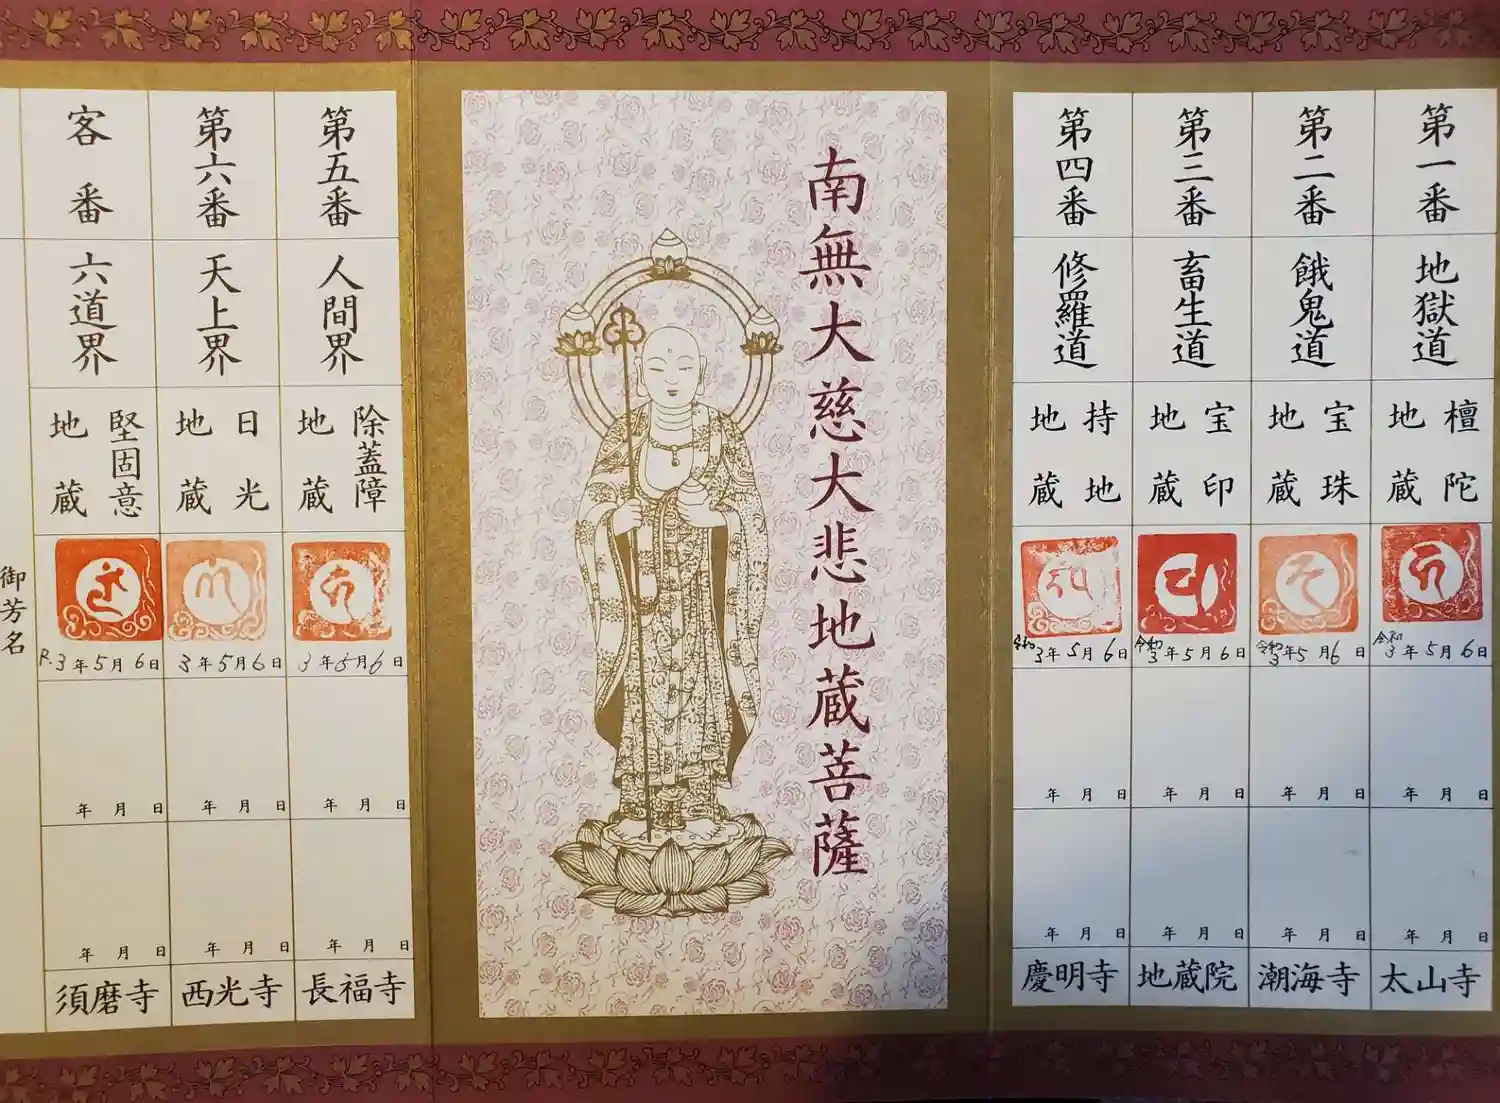 第一番
地獄道
檀陀
地蔵
令和
3年5月6日
年 月 日
年 月 日
太山寺
第二番
餓鬼道
宝珠
地蔵
令和
3年5月6日
年 月 日
年 月 日
潮海寺
第三番
畜生道
宝印
地蔵
令和
3年5月6日
年 月 日
年 月 日
地蔵院
第四番
修羅道
持地
地蔵
令和
3年5月6日
年 月 日
年 月 日
慶明寺
南無大慈大悲地蔵菩薩
第五番
人間界
除蓋障
地蔵
3年5月6日
年 月 日
年 月 日
長福寺
第六番
天上界
日光
地蔵
3年5月6日
年 月 日
年 月 日
西光寺
客番
六道界
堅固意
地蔵
R.3年5月6日
年 月 日
年 月 日
須磨寺
御芳名